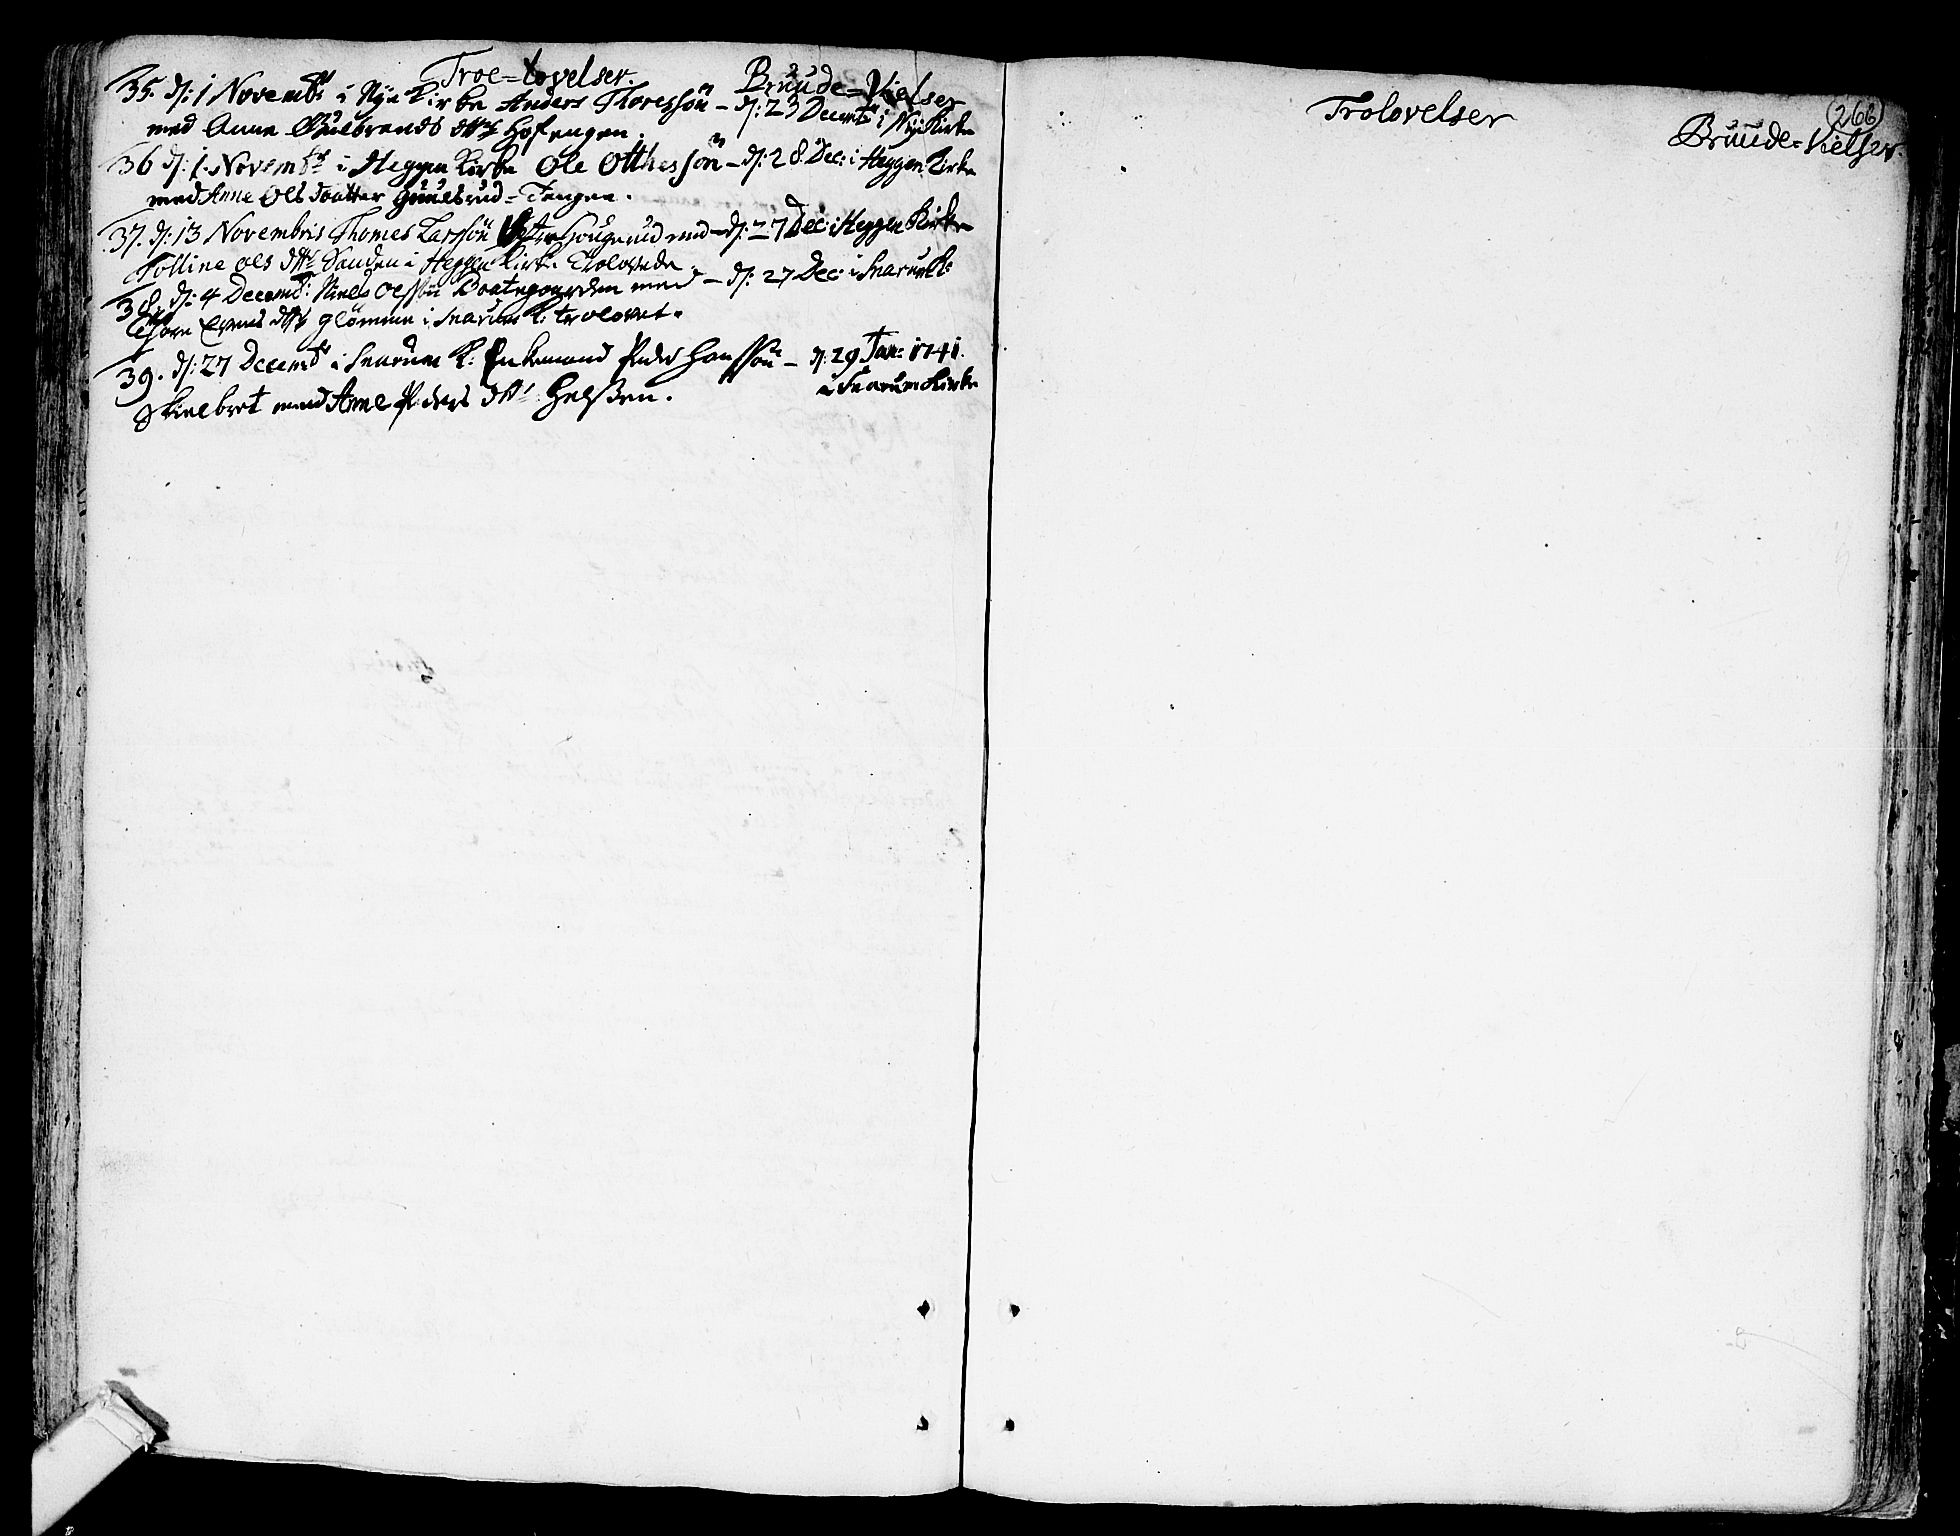 Troe=Lovelser. Bruude=Vielser
35. d: 1 Novembr i Nye Kirke Anders Thoressøn – d: 23 Decembr i Nye Kirke
med Anne Gulbrands dttr Hofengen.
36 d: 1. Novembr i Heggen Kirke Ole Otthessøn – d: 28 Dec: i Heggen Kirke
med Anne Ols daatter Gunelsrud=Tangen.
37. d: 13 Novembris Thomes Larssøn med – d: 27 Dec: i Heggen Kirke
Tolline Ols dttr Sanden i Heggen Kirke Trolovede.
38. d: 4 Decemb: Niels Olssøn Baategaarden med – d: 27 Dec: i Snarum K:
Evens dttr Glømme i Snarum K: trolovet.
39. d: 27 Decembr i Snarum K: Enkemand Peder Hanssøn – d: 29 Jan: 1741.
Skielbret med Anne Peders dttr Helsen. i Snarum Kirke
Trolovelser
266
Bruude=Vielser.